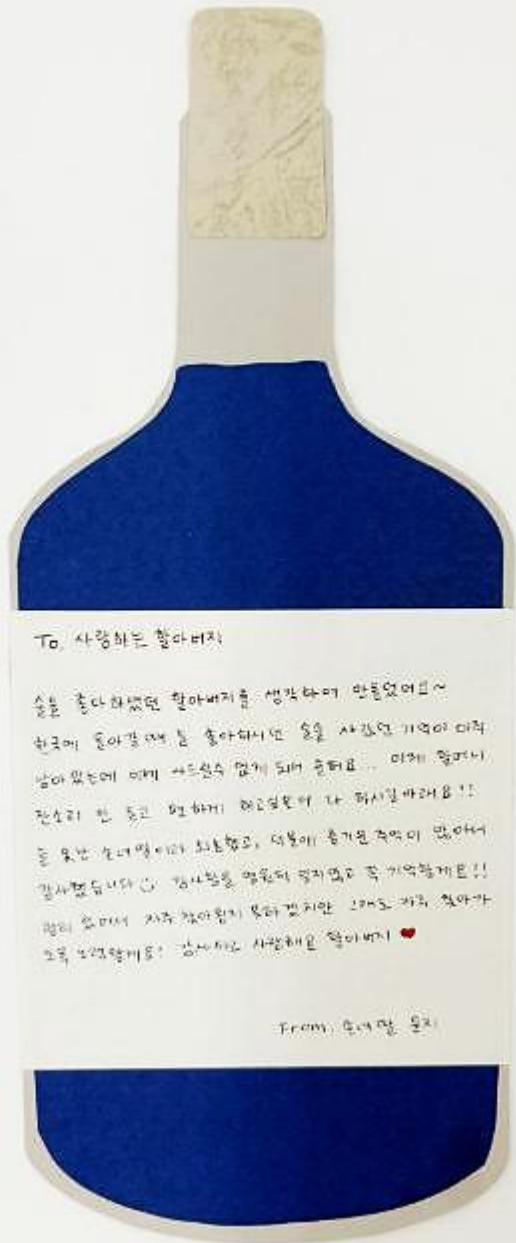 To. 사랑하는 할아버지
술을 좋아하셨던 할아버지를 생각하며 만들었어요~
한국에 돌아갈때 늘 좋아하시던 술을 사갔던 기억이 아직
남아있는데 이제 사드릴수 없게 되어 슬퍼요.. 이제 할머니
잔소리 안 듣고 편하게 하고싶은거 다 하시길바래요!!
늘 못난 손녀딸이라 죄송했고, 덕분에 즐거운 추억이 많아서
감사했습니다 감사함을 영원히 잊지않고 꼭 기억할게요!!
멀리 있어서 자주 찾아뵙지 못하겠지만 그래도 자주 찾아가
도록 노력할게요! 감사하고 사랑해요 할아버지 ♥
From. 손녀딸 윤지